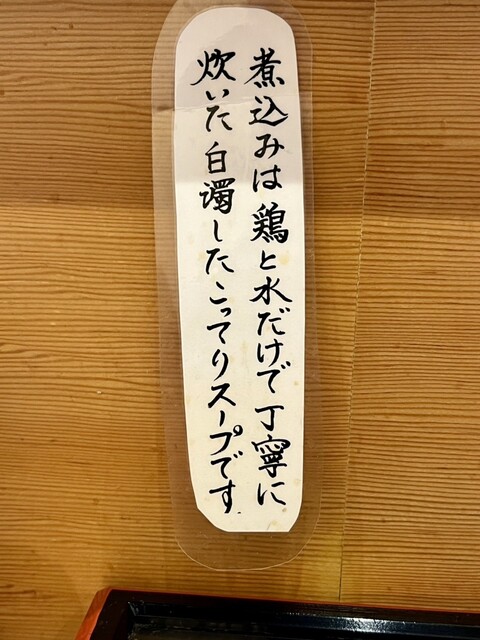 煮込みは鶏と水だけで丁寧に
炊いた白濁したこってりスープです